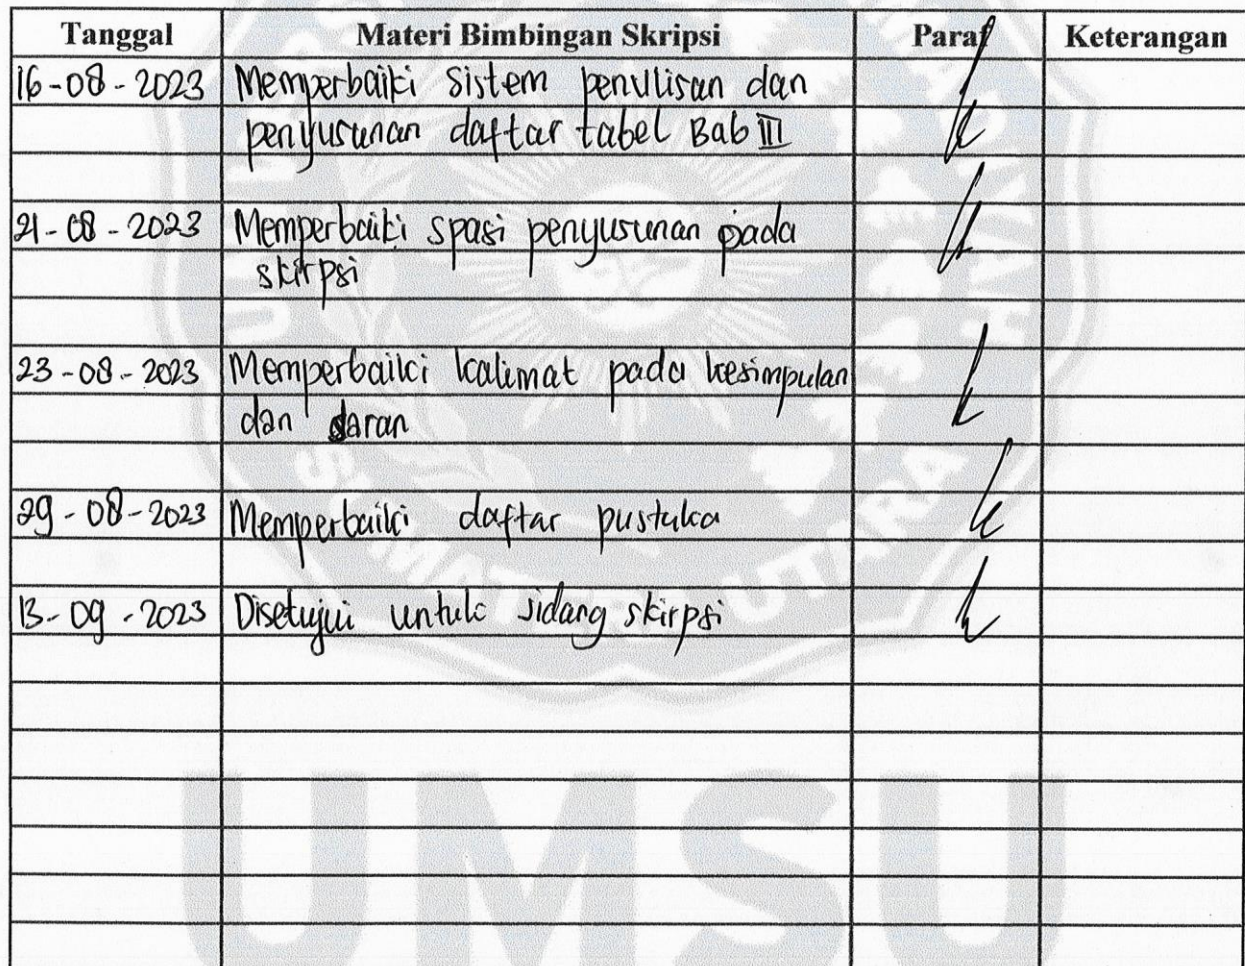 Tanggal Materi Bimbingan Skripsi Paraf Keterangan
16-08-2023 Memperbaiki Sistem penulisan dan
penyusunan daftar tabel Bab III
21-08-2023 Memperbaiki spasi penyusunan pada
skirpsi
23-08-2023 Memperbaiki kalimat pada kesimpulan
dan saran
29-08-2023 Memperbaiki daftar pustaka
13-09-2023 Disetujui untuk sidang skirpsi
SUMATERA UTARA
UMSU